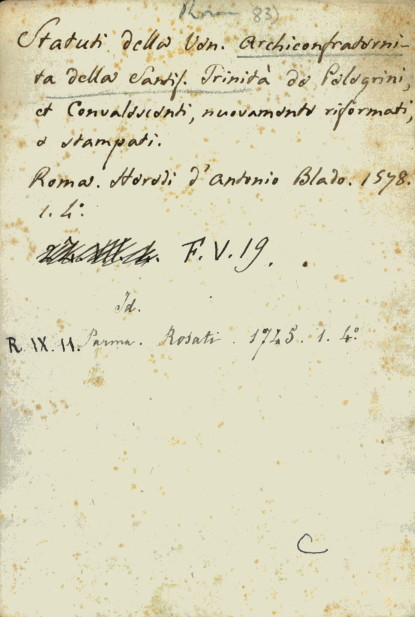 (Roma 83)
Statuti della Ven. Archiconfraterni-
ta della Santiss. Trinità de Pelegrini,
et Convalescenti, nuovamente riformati,
e stampati.
Roma. Heredi d'Antonio Blado. 1578.
1. 4.º
F. V. 19.
Id.
R. IX. 11. Parma. Rosati. 1745. 1. 4.º
C